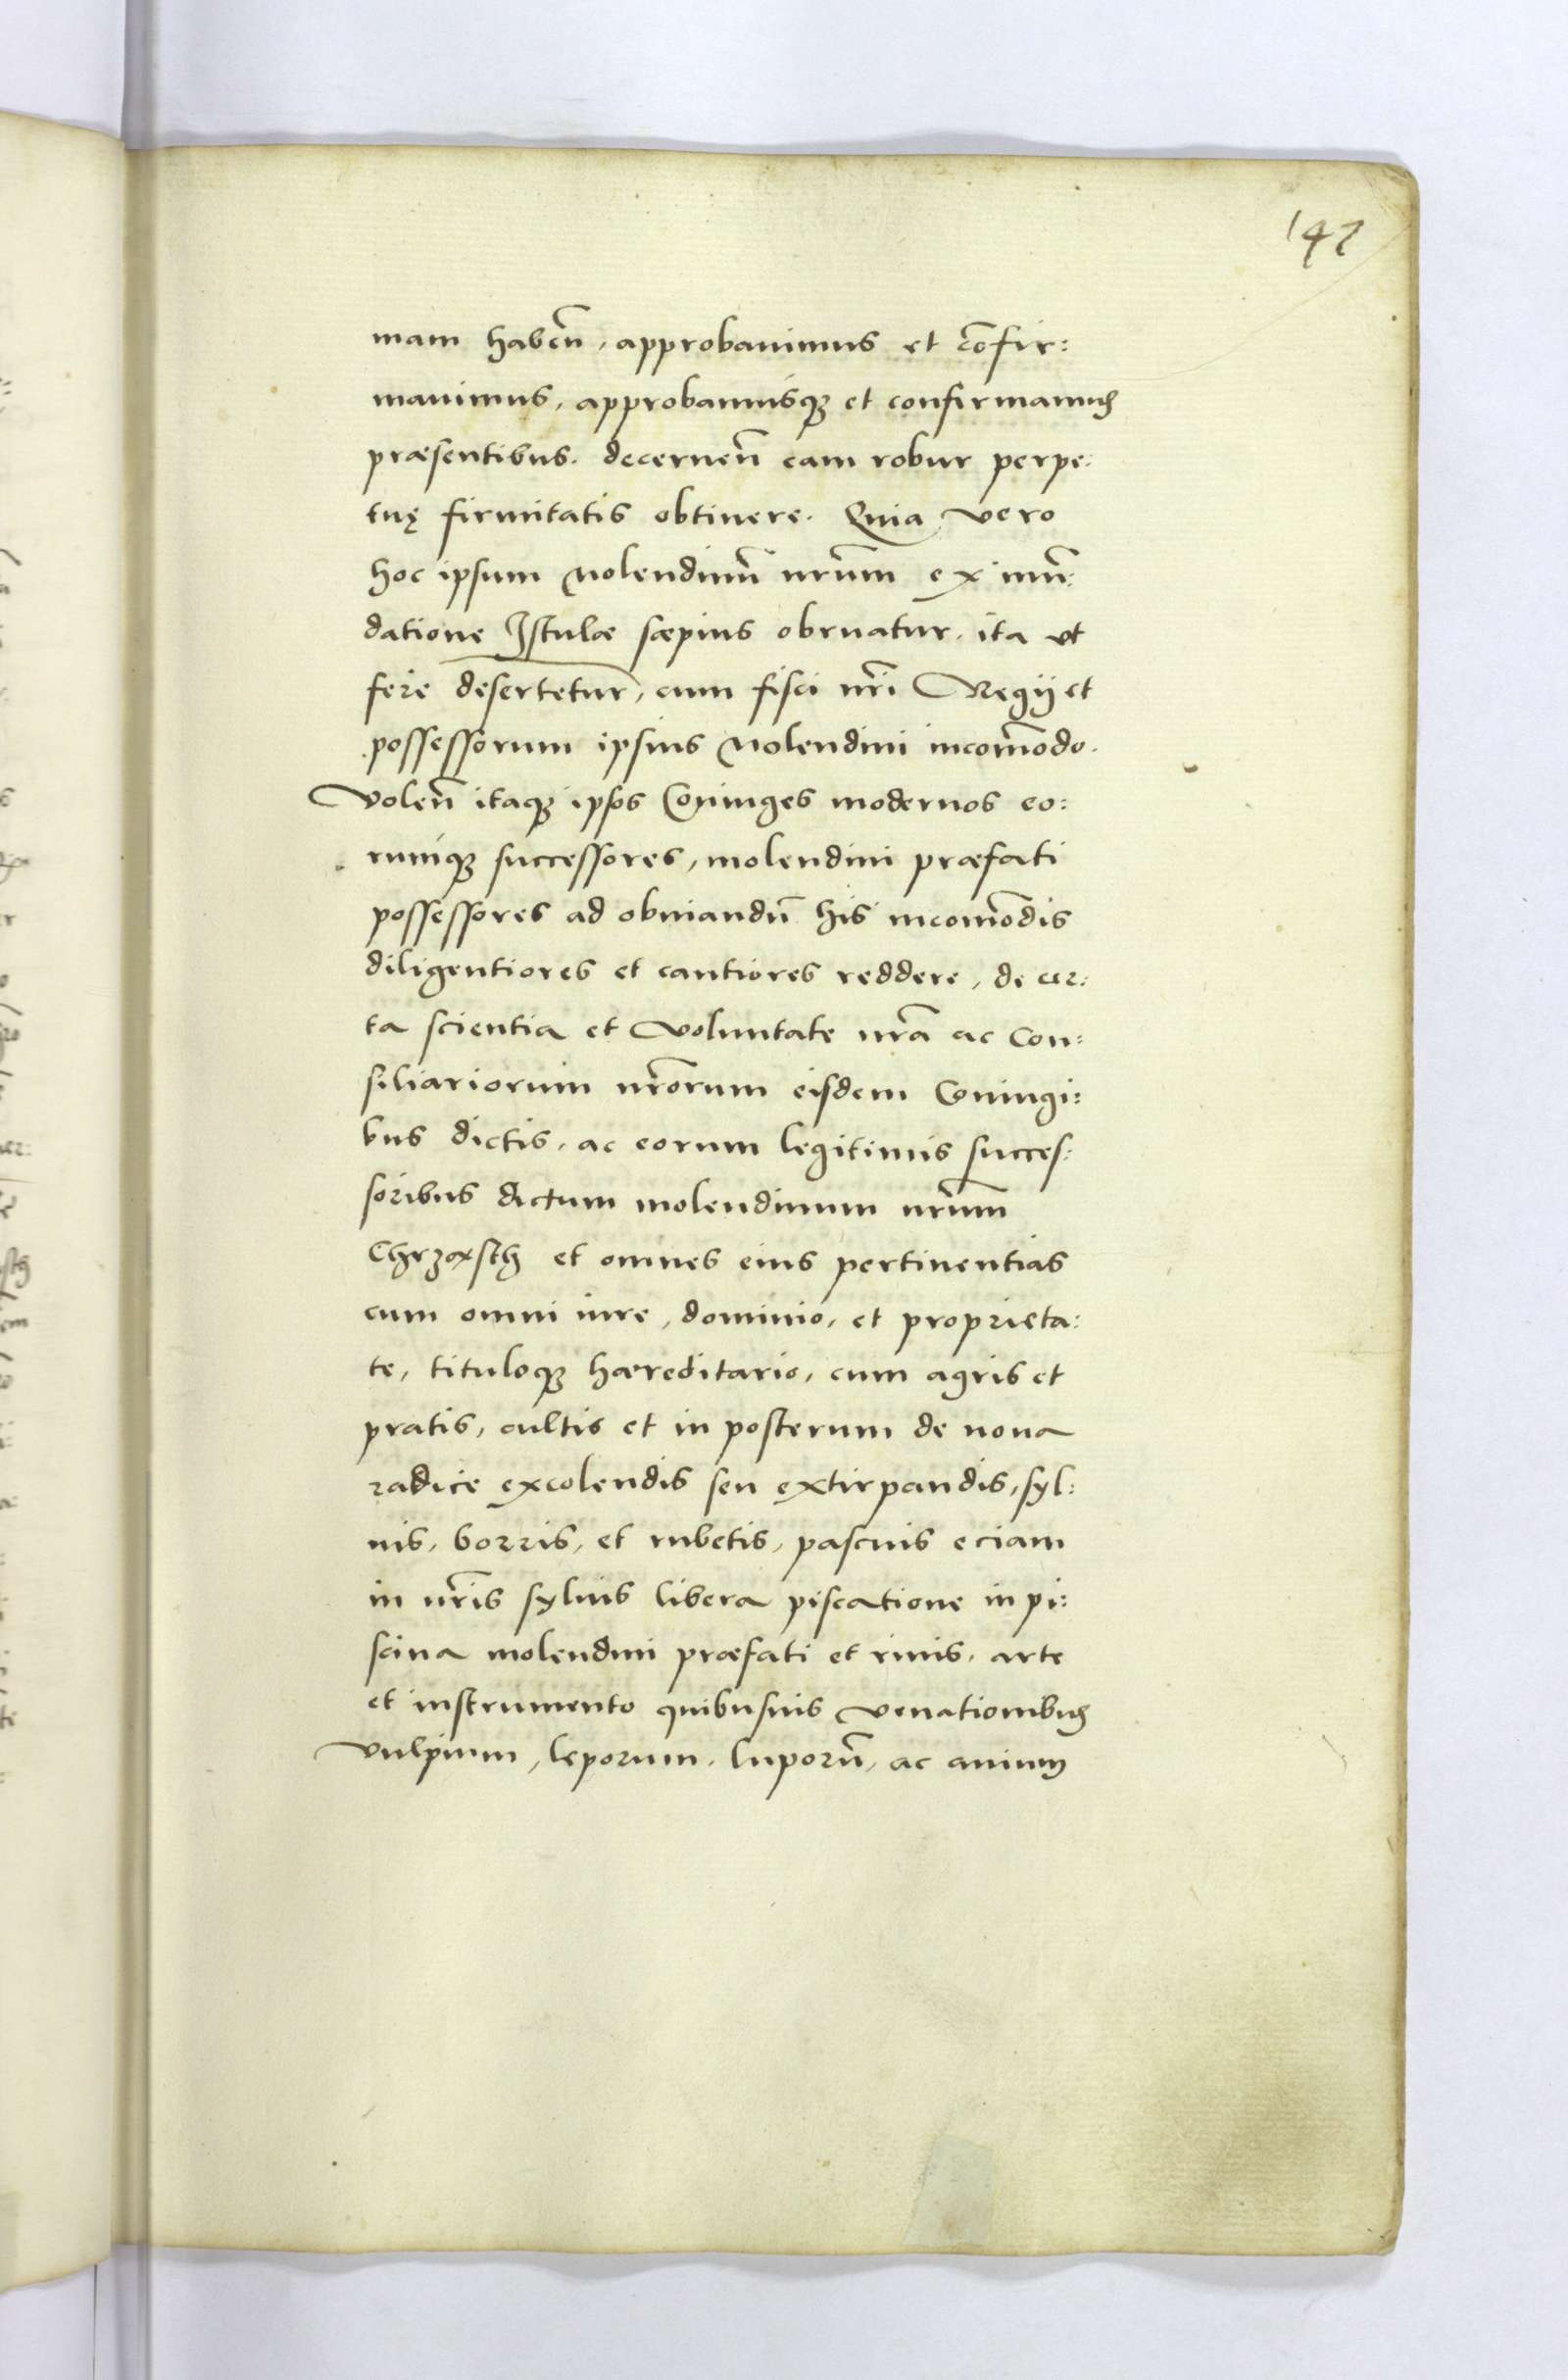 147
mam habeñ, approbavimus et cõfir:
mavimus, approbamusq; et confirmamus
præsentibus. decerneñ eam robur perpe:
tuę firmitatis obtinere. Quia vero
hoc ipsum molendinũ nrũm ex inũ:
datione Istulæ sæpius obruatur, ita ut
fere desertetur, cum fisci nrĩ Regij et
possessorum ipsius molendini incom̃odo.
Voleñ itaq; ipsos Coniuges modernos eo:
rumq; successores, molendini præfati
possessores ad obviandũ his incom̃odis
diligentiores et cautiores reddere, de cer:
ta scientia et voluntate nrã ac Con:
siliariorum nrõrum eisdem Coniugi:
bus dictis, ac eorum legitimis succes:
soribus dictum molendinum nrũm
Chrzasth et omnes eius pertinentias
cum omni iure, dominio, et proprieta:
te, tituloq; hæreditario, cum agris et
pratis, cultis et in posterum de nova
radice excolendis seu extirpandis, syl:
vis, borris, et rubetis, pascuis eciam
in nrĩs sylvis libera piscatione in pi:
scina molendini præfati et rivis, arte
et instrumento quibusvis venationibus
Vulpium, leporum, luporũ, ac avium